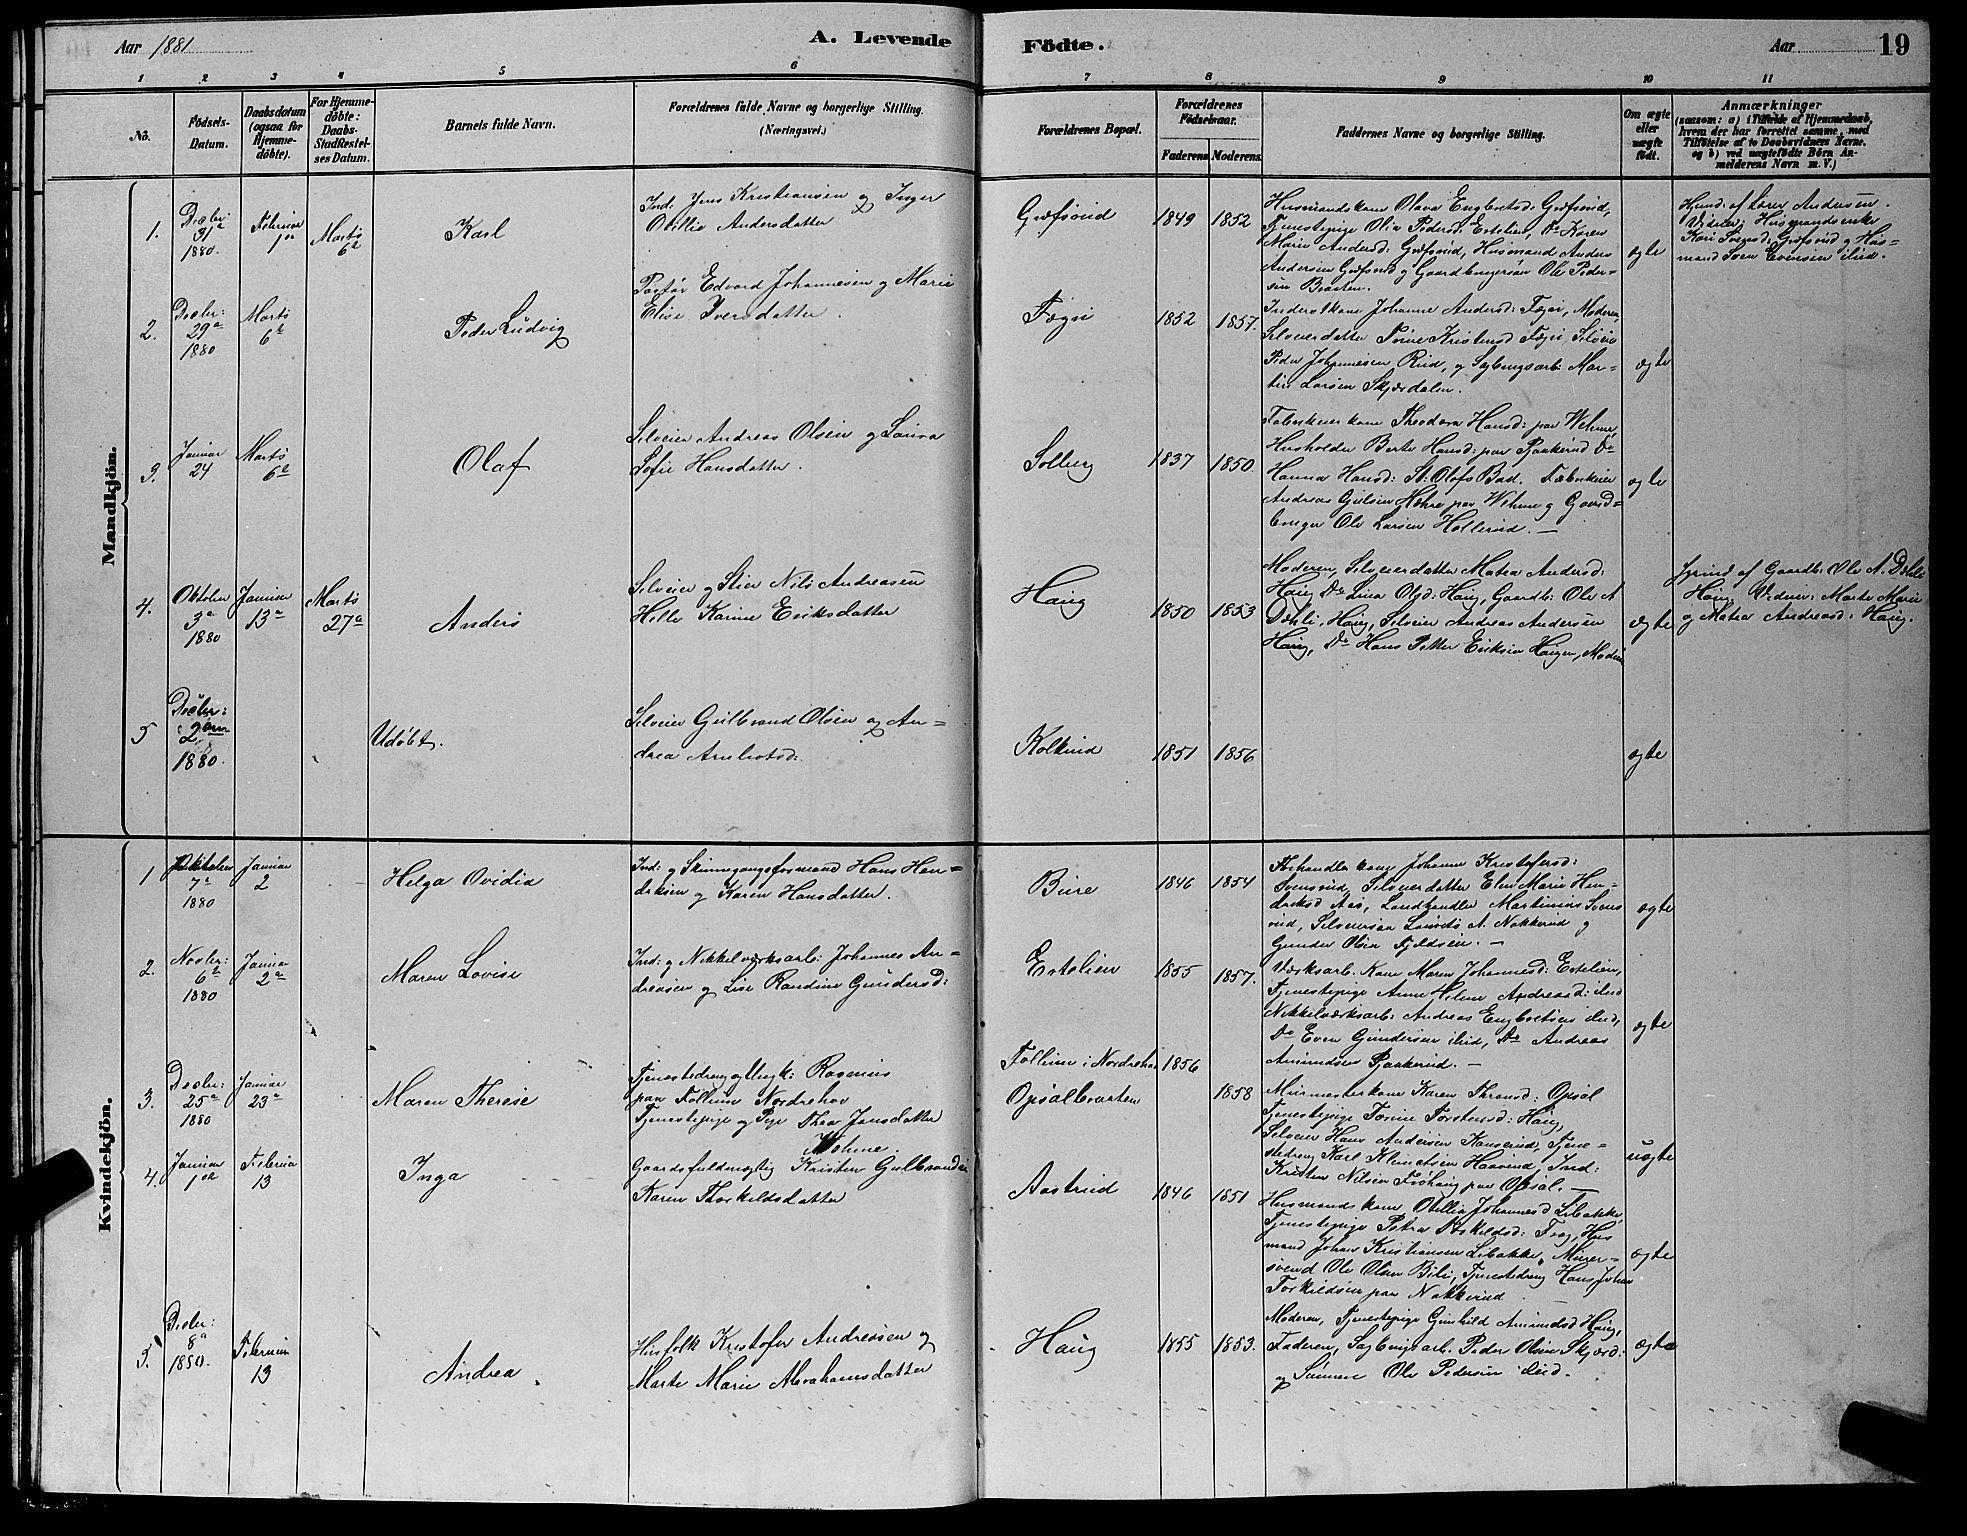 Aar 1881
A. Levende Födte.
Aar
19
1 2 3 4 5 6 7 8 9 10 11
No.
Födsels-Datum.
Daabsdatum (ogsaa for Hjemmedöbte).
For Hjemmedöbte: Daabs-Stadfestelses Datum.
Barnets fulde Navn.
Forældrenes fulde Navne og borgerlige Stilling.
(Næringsvei.)
Forældrenes Bopæl.
Forældrenes Födselsaar.
Faderens Moderens
Faddernes Navne og borgerlige Stilling.
Om ægte eller uægte födt.
Anmærkninger
(saasom: a) i Tilfælde af Hjemmedaab, hvem der har forrettet samme, med Tilföielse af to Daabsvidners Navne, og b) ved uægtefödte Börn Anmelderens Navn m. V.)
Mandkjön.
1. Decbr: 31te 1880. Februar Marts 6te
Karl
Ind: Jens Kristiansen og Inger
Otillia Andersdatter
Græfsrud 1849 1852
Husmandskone Olava Engbretsd: Græfsrud,
Tjenestepige Olia Pedersd: Estelien, Do Karen
Marie Andersd: Græfsrud, Husmand Anders
Andersen Græfsrud og Gaardbrugersøn Ole Peder=
sen Braaten.
ægte
mand Sven Evensen ibid.
2. Decbr: 29de 1880 Marts 6te
Peder Ludvig
Edvard Johannesen og Marie
Elise Iversdatter.
1852 1857.
Peder Johannesen Rud, og Sagbrugsarb: Mar=
tin Larsen Skjærdalen.
ægte
3. Januar 24 Marts 6te
Olaf
Selveier Andreas Olsen og Laura
Sofie Hansdatter.
Solberg 1837 1850
Theodora Hansd: paa Wehme
Husholder Berte Hansd: paa
Hanna Hansd: St: Olafs Bad.
bruger Ole Larsen Hollerud.
ægte
4. Oktober 3die 1880 Januar 13de Marts 27de
Anders
Selveier og Nils Andreasen
Helle Karine Eriksdatter
Haug 1850 1853
Moderen, Selveierdatter Matea Andersd:
Haug, Do Lina Olsd: Haug, Gaardb: Ole A
Dæhli. Haug, Selveier Andreas Andersen
Haug, Do Hans Petter Eriksen Haugen,
ægte
af Gaardb: Ole A. Dæhli
Haug. Vidner: Marte Marie
og Matea Andreasd: Haug.
5 Decbr: 2den 1880.
Udöbt.
Selveier Gulbrand Olsen og An=
drea
1851 1856
ægte
Kvindekjön.
1 Oktober 7de 1880 Januar 2
Helga Ovidia
Ind: og Skinnegangsformand Hans Hen=
driksen og Karen Hansdatter.
Bure 1846 1854
Johanne Kristofersd:
Svensrud, Selveierdatter Elen Marie Hen=
driksd Aas, Landhandler Martinius Svens
rud, Selveiersøn Laurits A. Nakkerud og
Gunder Olsen Fjeldsien. —
ægte
2. Novbr: 6te 1880 Januar 2den
Maren Lovise
Ind: og Nikkelværksarb: Johannes An=
dreasen og Lise Randine Gundersd:
Estelien 1855 1857.
Værksarb. Kone Maren Johannesd: Estelien,
Tjenestepige Anne Helene Andreasd: ibid
Nikkelværksarb: Andreas Engbretsen ibid,
Do Even Gundersen ibid, Do Andreas
Amundsen Raakerud. —
ægte
3. Decbr: 25de 1880 Januar 23de
Maren Therese
Tjenestedreng og Ungk: Rasmus
paa Follum Nordrehov
Tjenestepige og Pige Thea Jensdatter
Wehme.
Follum i Nordrehov 1856
Opsalbraaten 1858
Murmesterkone Karen Thronsd: Opsal
Tjenestepige Torine Torstensd: Haug,
Selveier Hans Andersen Tjene=
stedreng Karl Haavrud, Ind:
Kristen Nilsen Frøhaug paa Opsal. —
uægte
4. Januar Februar 13
Inga
Gaardsfuldmægtig Kristen Gulbrandsen
Karen Thorkildsdatter
Aastrud 1846 1851
Husmandskone Otillia Johannesd
Tjenestepige Petra Frog, Hus
mand Johan Kristiansen Murer=
svend Ole Olsen Bili, Tjenestedreng Hans Johan
Torkildsen paa Nakkerud
ægte
5. Decbr: 8de 1880. Februar 13
Andrea
Husfolk Kristofer Andreasen og
Marte Marie Abrahamsdatter
Haug 1855 1853.
Moderen, Tjenestepige Gunhild Amundsd Haug,
Faderen, Sagbrugsarb. Peder Olsen Skjærd:
og Sønnen Ole Pedersen ibid.
ægte